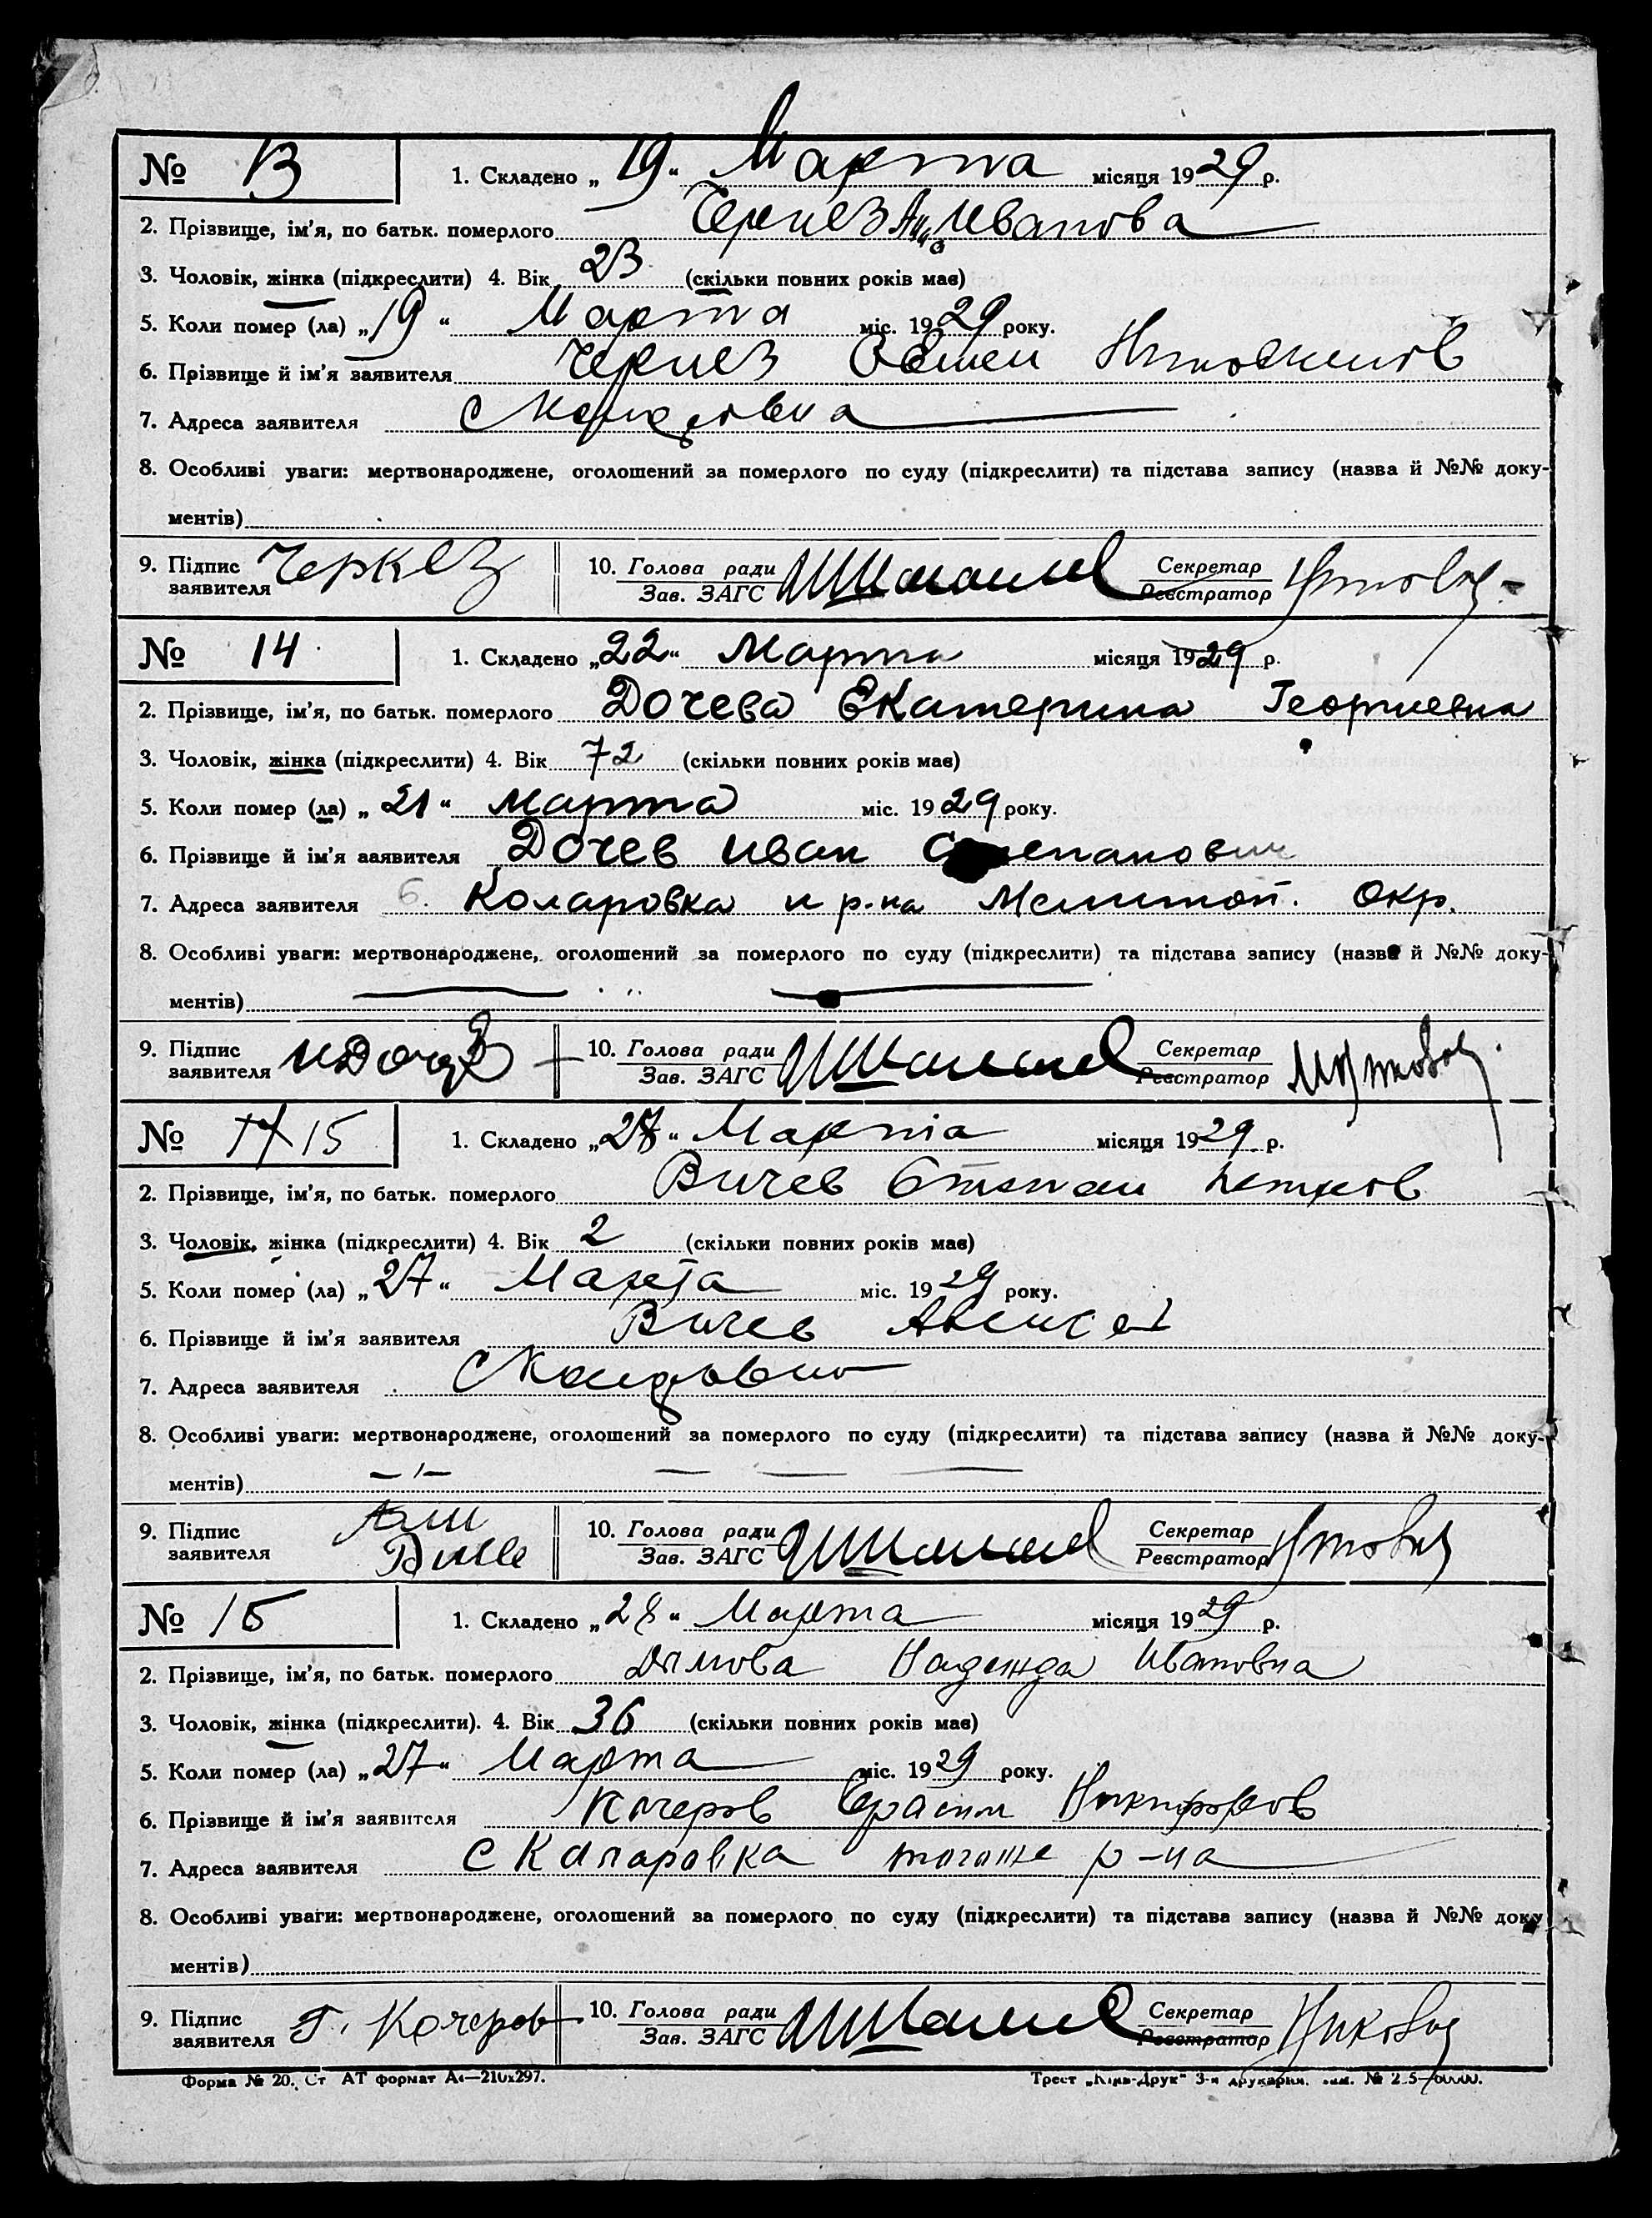 № 13 1. Складено „19“ Марта місяця 1929 р.
2. Прізвище, ім'я, по батьк. померлого Черкез Ивановa
3. Чоловік, жінка (підкреслити) 4. Вік 23 (скільки повних років має)
5. Коли помер (ла) „19“ Марта міс. 1929 року.
6. Прізвище й ім'я заявителя Черкез
7. Адреса заявителя с
8. Особливі уваги: мертвонароджене, оголошений за померлого по суду (підкреслити) та підстава запису (назва й №№ доку-
ментів)
9. Підпис заявителя Черкез 10. Голова ради Зав. ЗАГС Секретар Реєстратор
№ 14 1. Складено „22“ Марта місяця 1929 р.
2. Прізвище, ім'я, по батьк. померлого Дочева Екатерина Георгиевна
3. Чоловік, жінка (підкреслити) 4. Вік 72 (скільки повних років має)
5. Коли помер (ла) „21“ Марта міс. 1929 року.
6. Прізвище й ім'я заявителя Дочев Иван Степанович
7. Адреса заявителя с. Коларовка н р-на Мелитоп. Окр.
8. Особливі уваги: мертвонароджене, оголошений за померлого по суду (підкреслити) та підстава запису (назва й №№ доку-
ментів)
9. Підпис заявителя И Дочев 10. Голова ради Зав. ЗАГС Секретар Реєстратор
№ 15 1. Складено „27“ Марта місяця 1929 р.
2. Прізвище, ім'я, по батьк. померлого Вичев Степан Петков
3. Чоловік, жінка (підкреслити) 4. Вік 2 (скільки повних років має)
5. Коли помер (ла) „27“ Марта міс. 1929 року.
6. Прізвище й ім'я заявителя Вичев Алексей
7. Адреса заявителя с
8. Особливі уваги: мертвонароджене, оголошений за померлого по суду (підкреслити) та підстава запису (назва й №№ доку-
ментів)
9. Підпис заявителя 10. Голова ради Зав. ЗАГС Секретар Реєстратор
№ 16 1. Складено „28“ Марта місяця 1929 р.
2. Прізвище, ім'я, по батьк. померлого Дымова Надежда Ивановна
3. Чоловік, жінка (підкреслити). 4. Вік 36 (скільки повних років має)
5. Коли помер (ла) „27“ Марта міс. 1929 року.
6. Прізвище й ім'я заявителя Кочеров Герасим Никифоров
7. Адреса заявителя с Каларовка тогоже р-на
8. Особливі уваги: мертвонароджене, оголошений за померлого по суду (підкреслити) та підстава запису (назва й №№ доку
ментів)
9. Підпис заявителя Г. Кочеров 10. Голова ради Зав. ЗАГС Секретар Реєстратор
Форма № 20. Ст АТ формат А4—210х297. Трест „Київ-Друк“ 3-я друкарня.